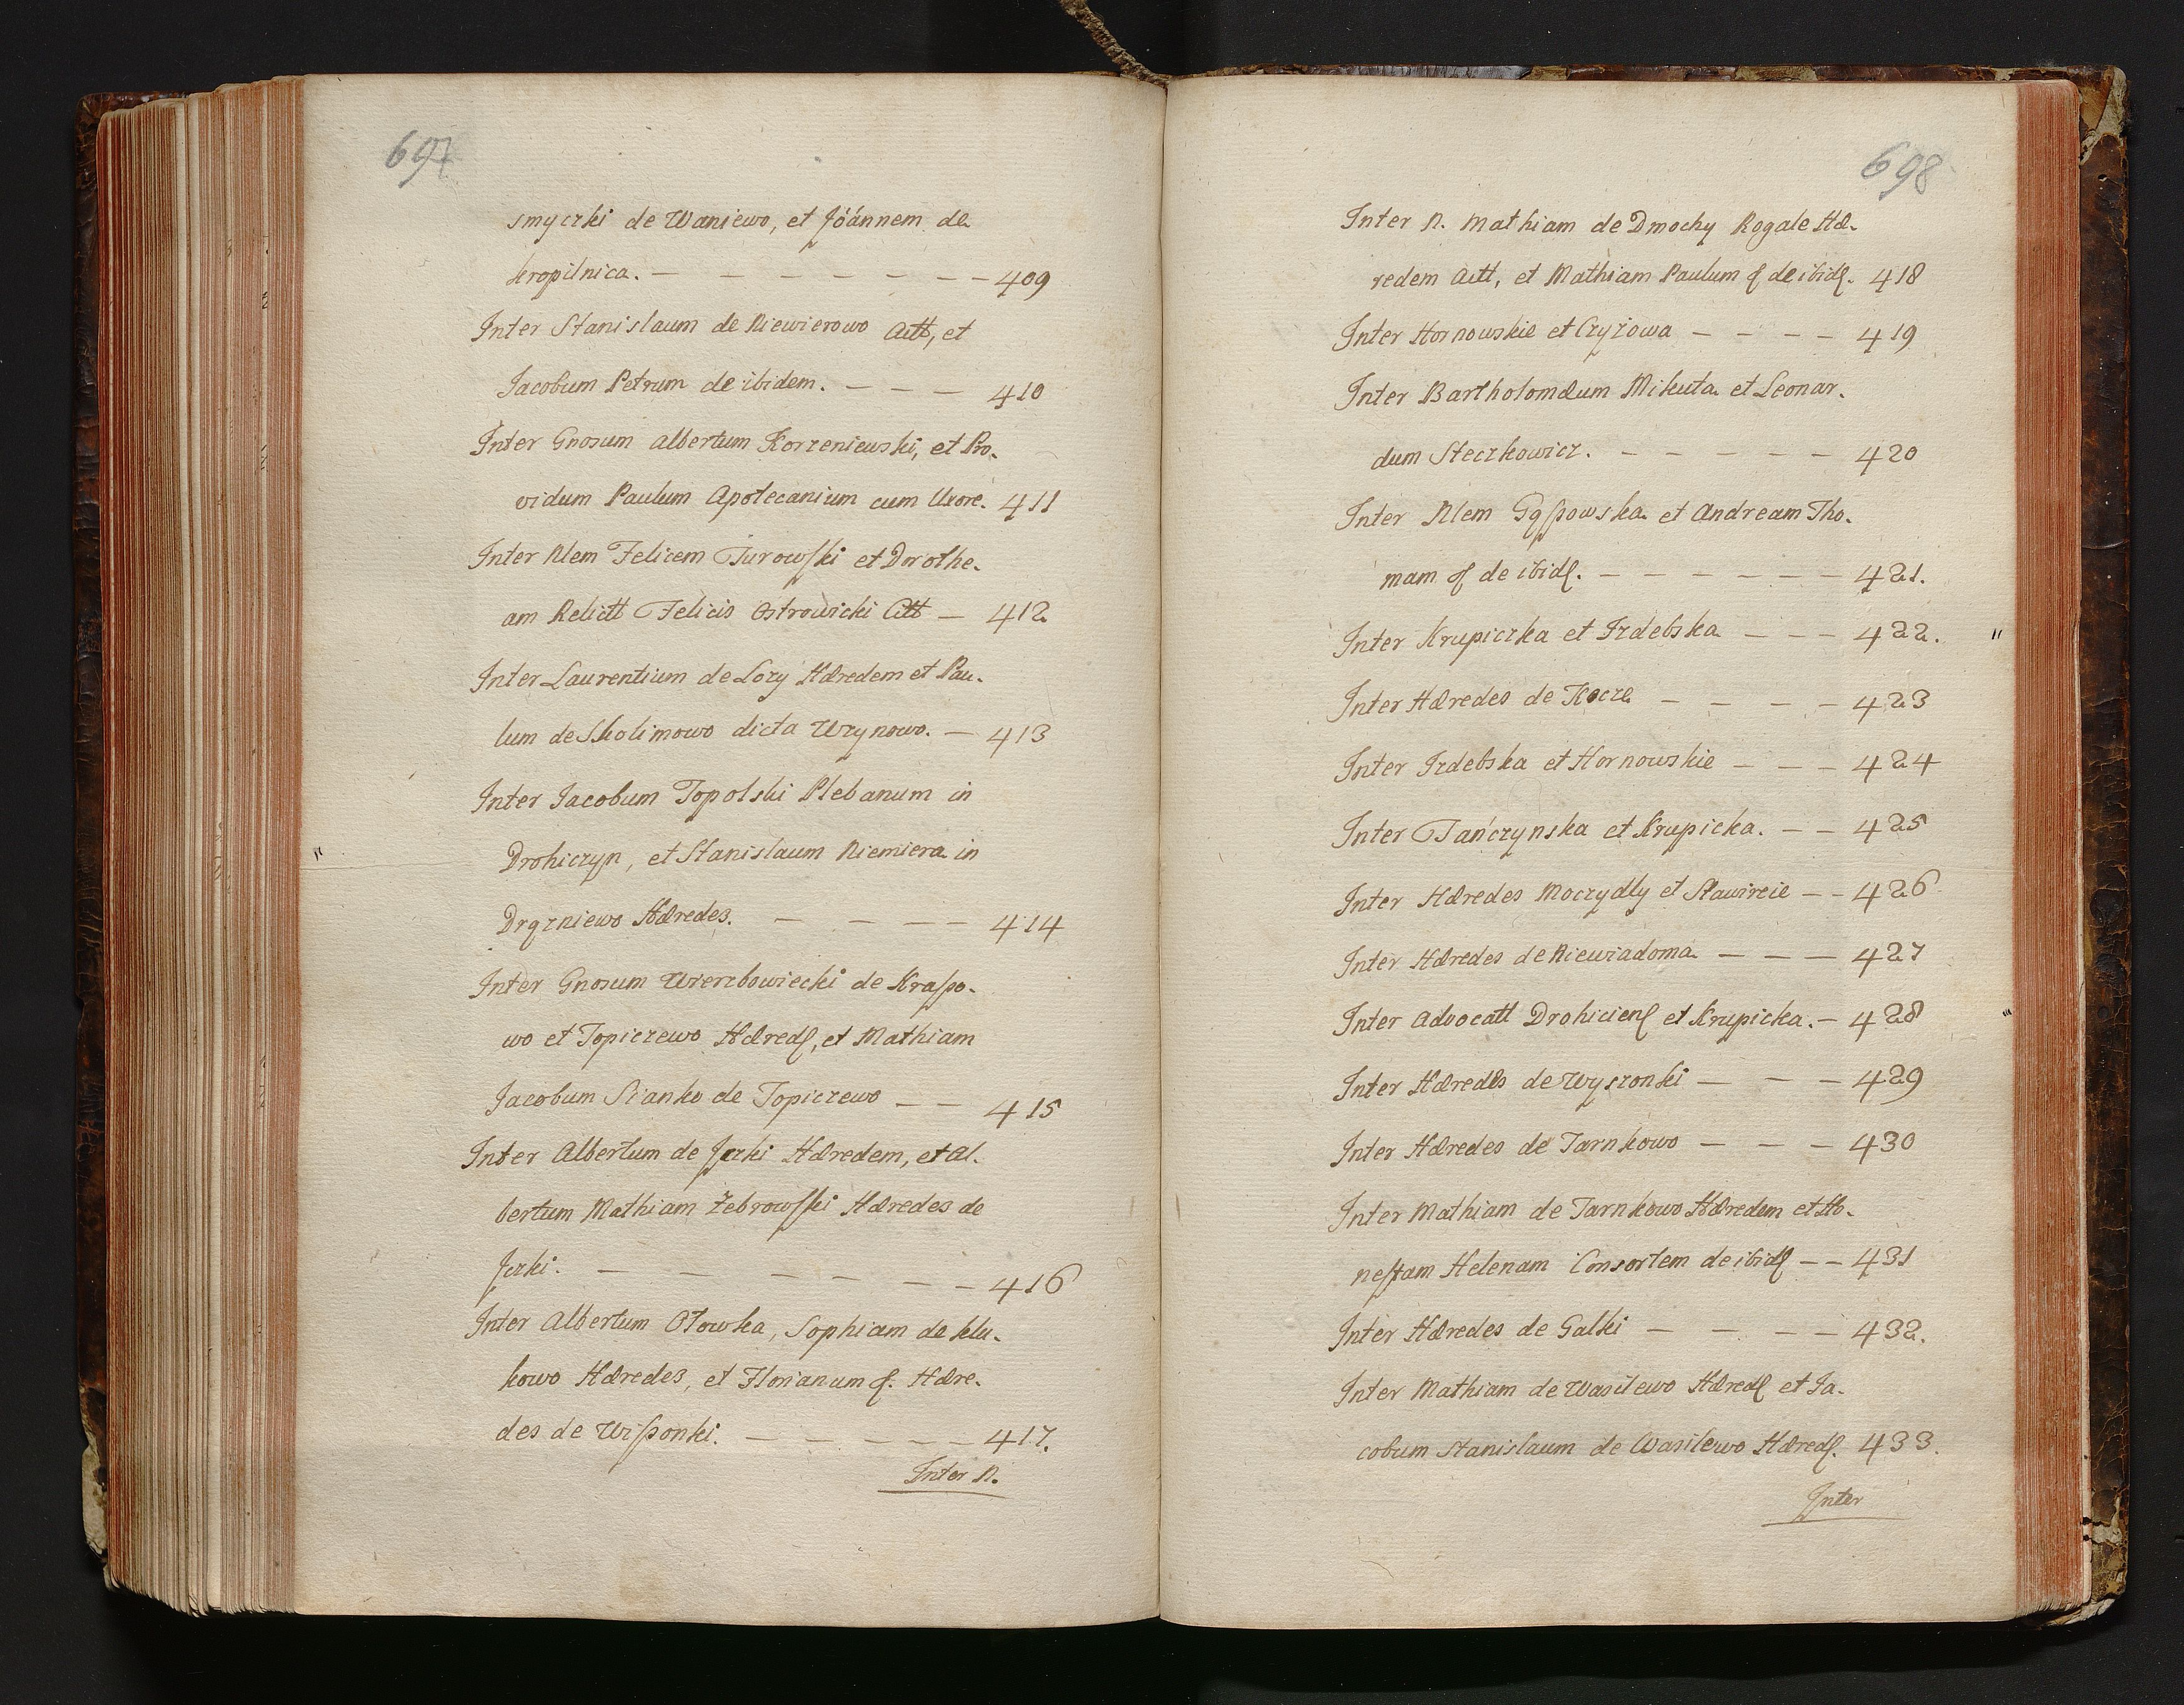 697
smyczki de Waniewo, et Jóánnem de
kropilnica. — — — — — — — 409
Inter Stanislaum de Niewierowo Actt, et
Jacobum Petrum de ibidem. — — — 410
Inter Gnosum Albertum Korzeniewski, et Pro-
vidum Paulum Apotecanium cum Uxore. 411
Inter Nlem Felicem Turowſki et Dorothe-
am Relictt Felicis Ostrowicki Actt — 412
Inter Laurentium de Lozy Hæredem et Pau-
lum de Skolimowo dicta Wzynowo. — 413
Inter Jacobum Topolski Plebanum in
Drohiczyn, et Stanislaum Niemiera in
Drązniewo Hæredes. — — — — 414
Inter Gnosum Wierzbowiecki de Kraſso-
wo et Topiczewo Hæredſ, et Mathiam
Jacobum Sianko de Topiczewo — — 415
Inter Albertum de Jezki Hæredem, et Al-
bertum Mathiam Żebrowſki Hæredes de
Jezki. — — — — — — 416
Inter Albertum Otowka, Sophiam de klu-
kowo Hæredes, et Florianum ꝭ. Hære-
des de Wiſsonki. — — — — — 417.
Inter N.
698
Inter N. Mathiam de Dmochy Rogale Hæ-
redem Actt, et Mathiam Paulum ꝭ de ibidſ. 418
Inter Hornowskie et Czyżowa — — — — 419
Inter Bartholomæum Mikuta et Leonar-
dum Steczkowicz. — — — — — 420
Inter Nlem Gąſsowska et Andream Tho-
mam ꝭ de ibidſ. — — — — — — 421.
Inter Krupiczka et Izdebska — — — 422.
Inter Hæredes de Kocze — — — — 423
Inter Izdebska et Hornowskie — — — 424
Inter Tańczynska et Krupicka. — — 425
Inter Hæredes Moczydly et Slawireie — — 426
Inter Hæredes de Niewiadoma — — — 427
Inter Advocatt Drohiciensſ et Krupicka. — 428
Inter Hæredes de Wyszonki — — — 429
Inter Hæredes de Tarnkowo — — — 430
Inter Mathiam de Tarnkowo Hæredem et Ho-
neſtam Helenam Consortem de ibidſ — — 431
Inter Hæredes de Galki — — — — 432.
Inter Mathiam de Wasilewo Hæredſ et Ja-
cobum Stanislaum de Wasilewo Hæredſ. 433.
Inter